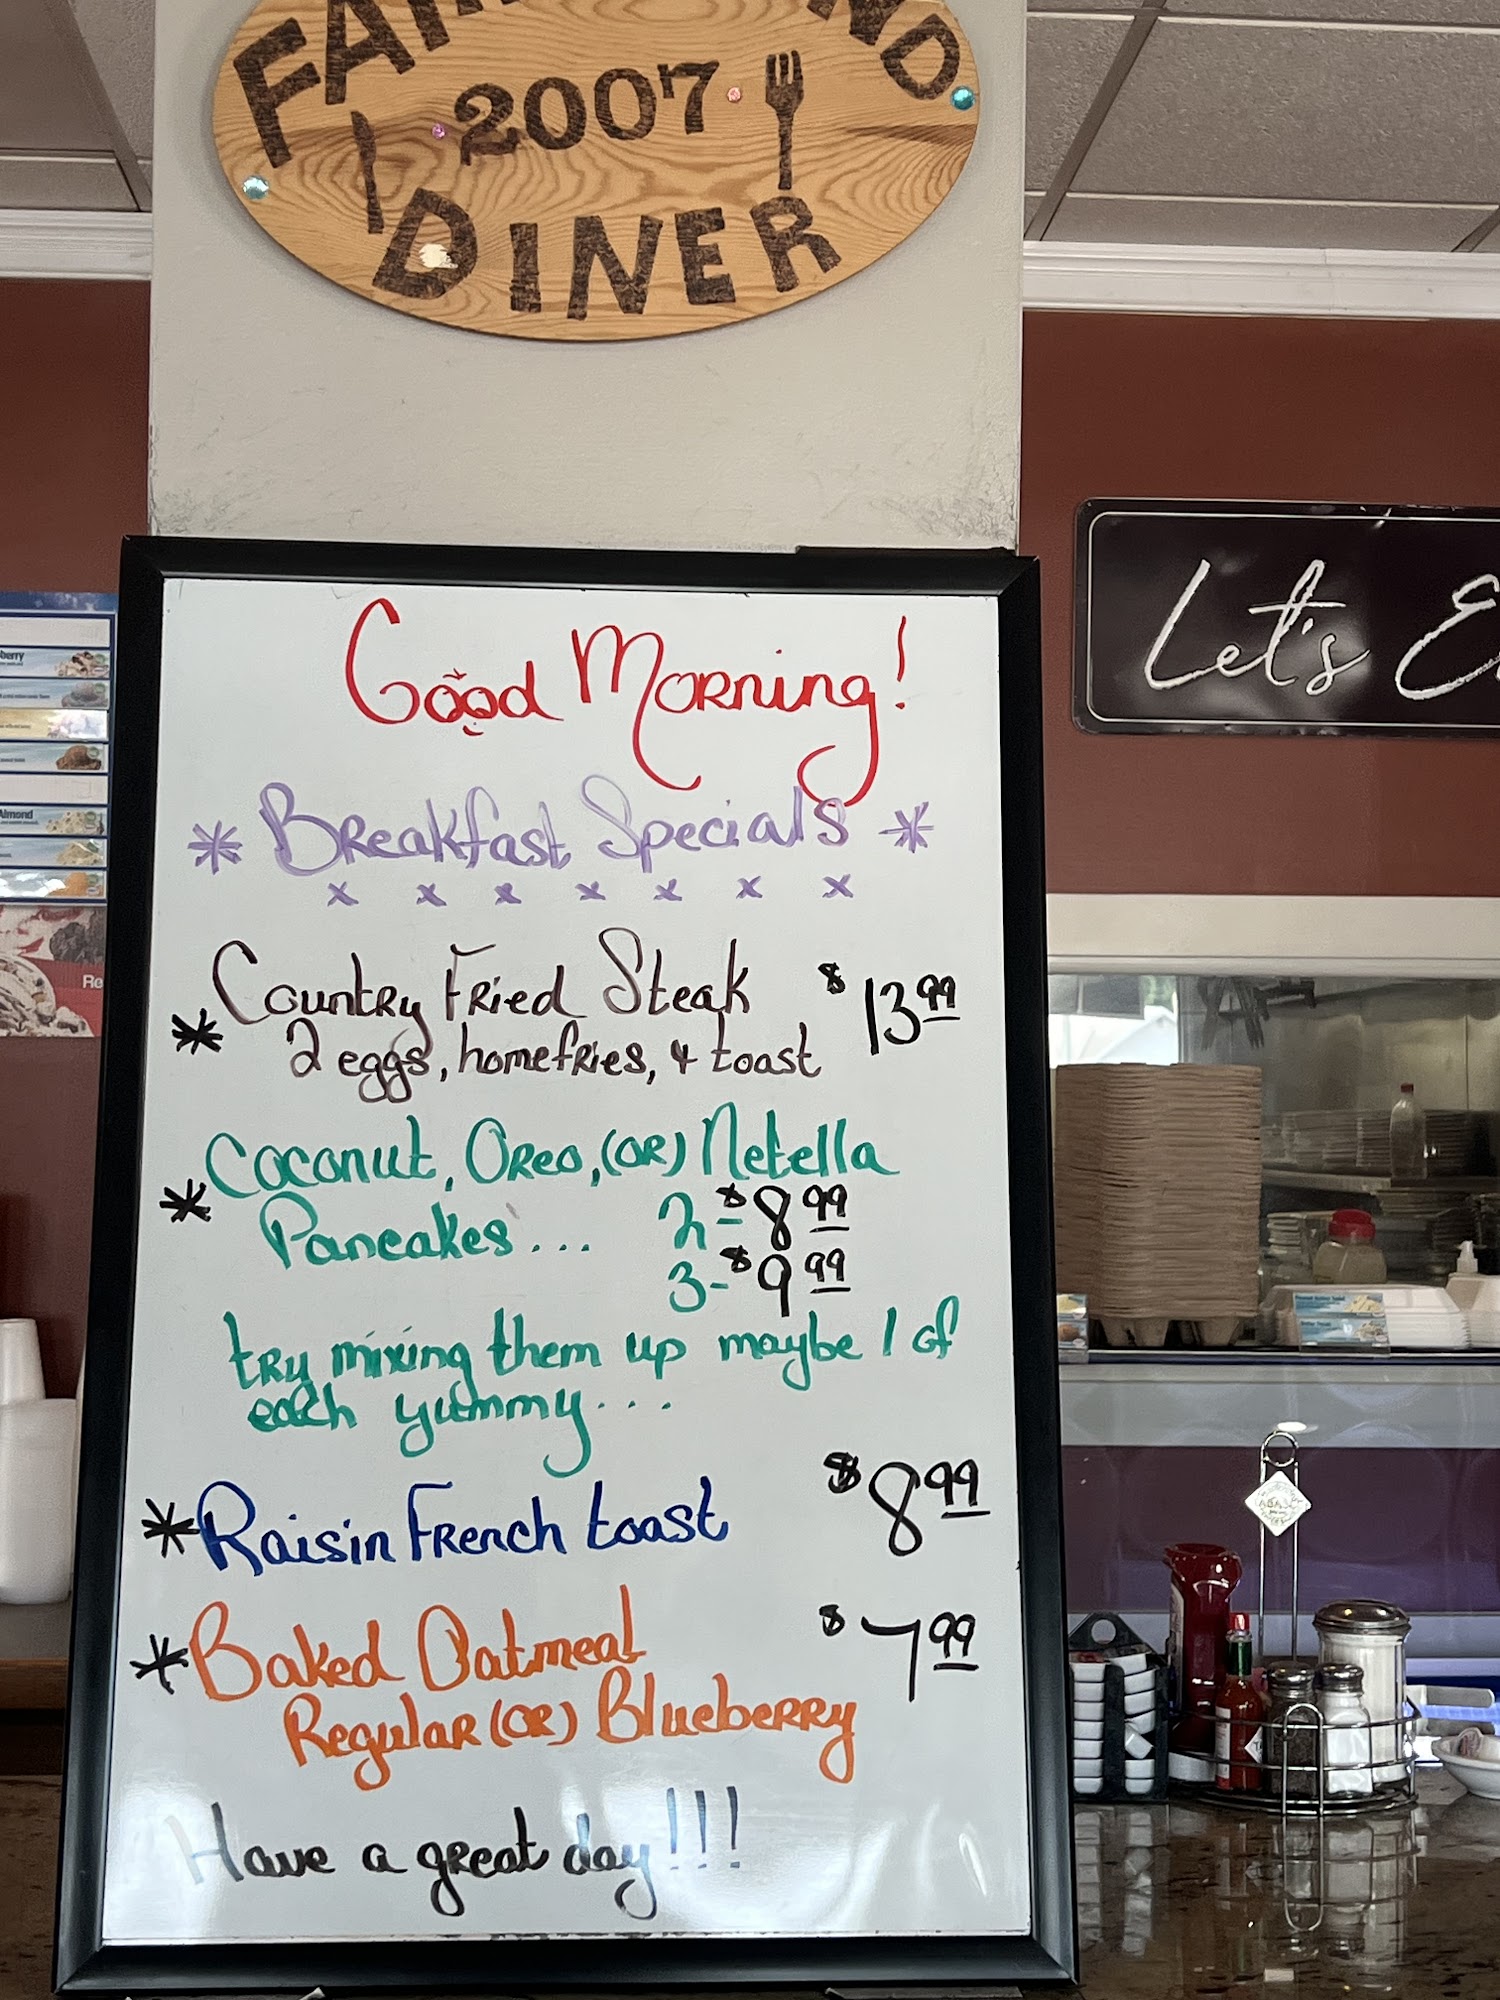 2007
DINER
Let's
Good Morning!
* Breakfast Specials *
x x x x x x x
* Country Fried Steak $13.99
2 eggs, homefries, & toast
* Coconut, Oreo, (OR) Netella
Pancakes... 2-$8.99
3-$9.99
try mixing them up maybe 1 of
each yummy...
* Raisin French toast $8.99
* Baked Oatmeal $7.99
Regular (OR) Blueberry
Have a great day!!!
Almond